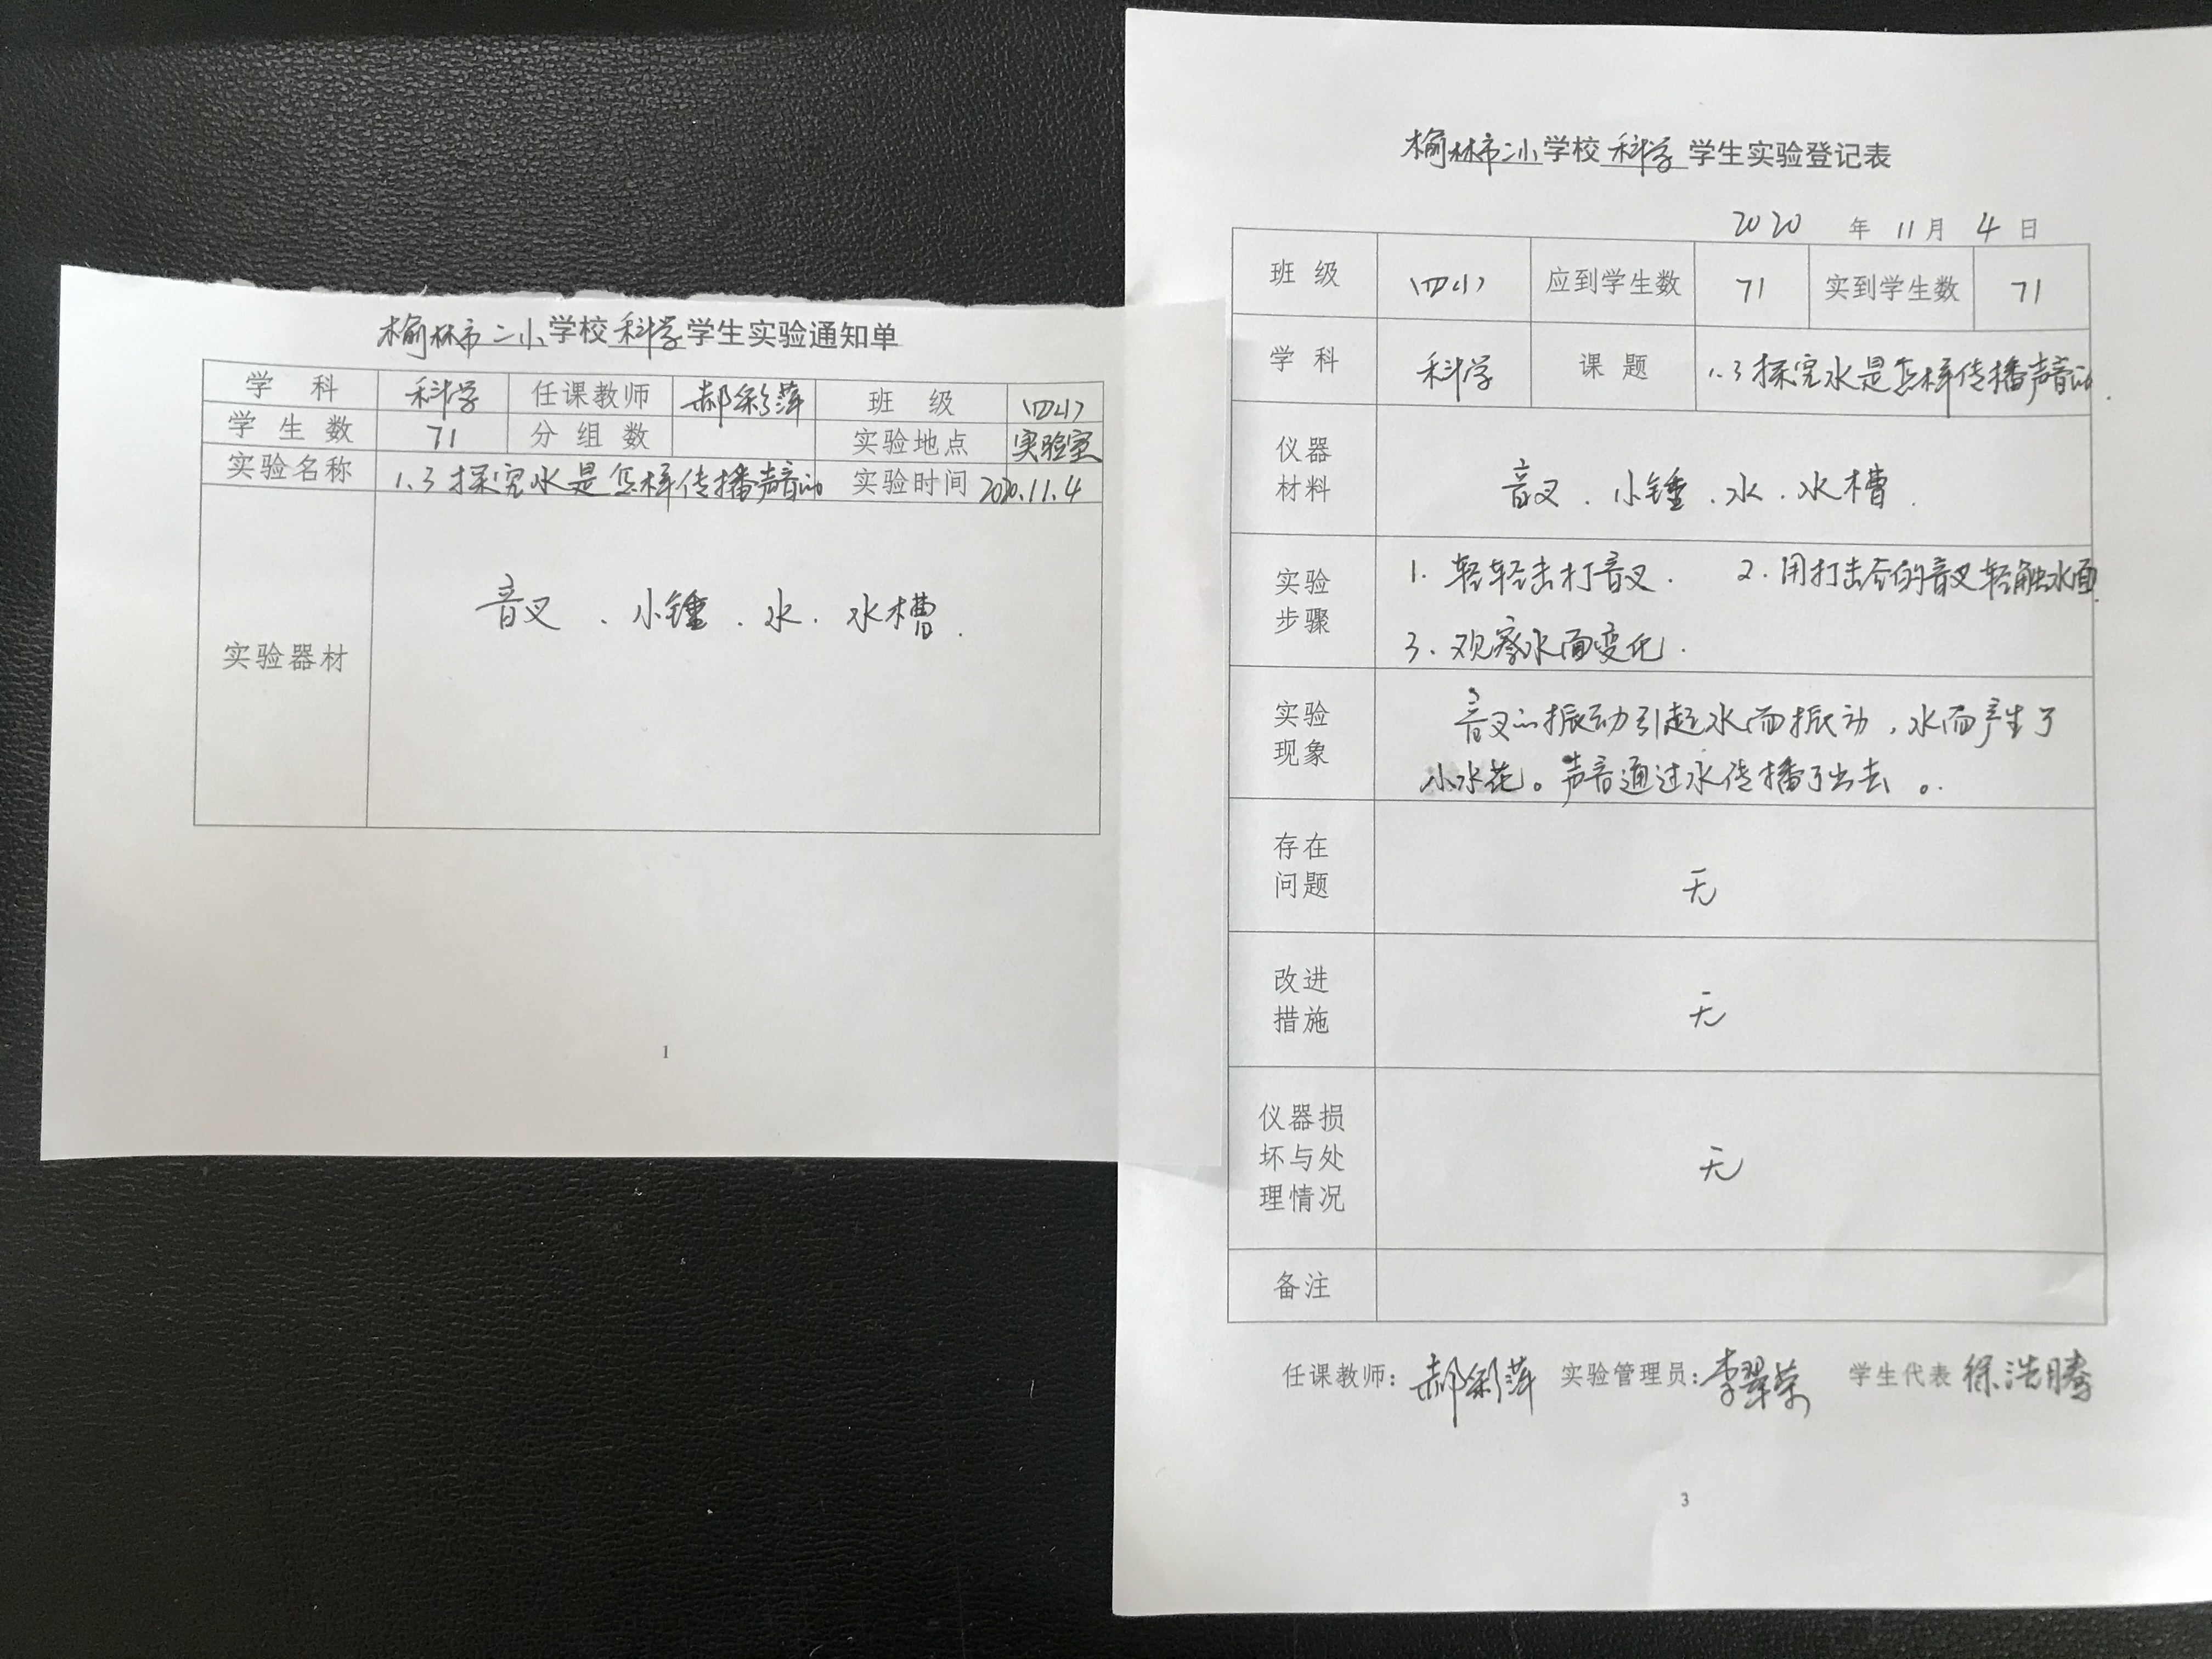 榆林市二小学校科学学生实验通知单
学 科 科学 任课教师 郝彩萍 班 级 (四1)
学 生 数 71 分 组 数 实验地点 实验室
实验名称 1.3探究水是怎样传播声音的 实验时间 2020.11.4
实验器材 音叉、小锤、水、水槽.
1
榆林市二小学校 科学 学生实验登记表
2020 年 11月 4 日
班 级 (四1) 应到学生数 71 实到学生数 71
学 科 科学 课 题 1.3探究水是怎样传播声音的.
仪器
材料
音叉、小锤、水、水槽.
实验
步骤
1. 轻轻击打音叉. 2.用打击后的音叉轻触水面.
3、观察水面变化.
实验
现象
音叉的振动引起水面振动,水面产生了
小水花。声音通过水传播了出去。
存在
问题
无
改进
措施
无
仪器损
坏与处
理情况
无
备注
任课教师: 郝彩萍 实验管理员: 李翠荣 学生代表 徐浩腾
3